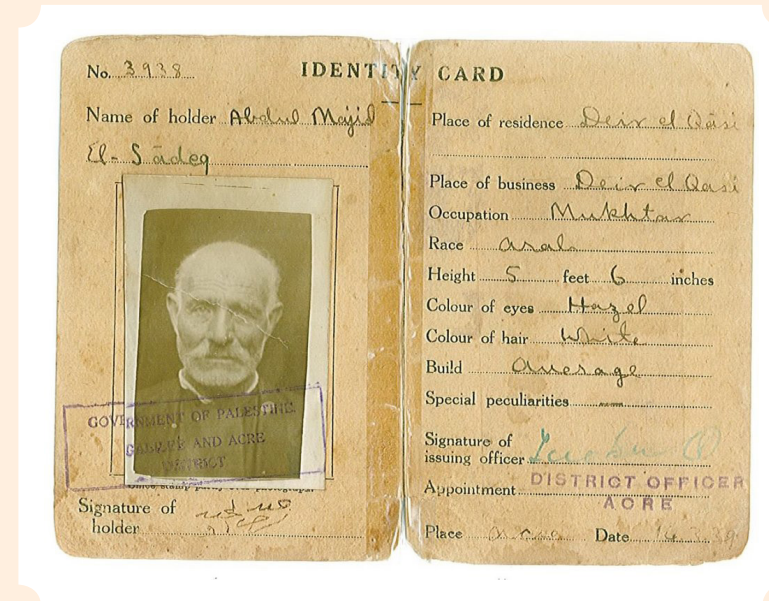 No. 3938
IDENTITY CARD
Name of holder Abdul Majid
El-Sādeq
GOVERNMENT OF PALESTINE.
GALILEE AND ACRE
DISTRICT
Signature of
holder
Place of residence Deir el Qāsi
Place of business Deir el Qasi
Occupation Mukhtar
Race Arab
Height 5 feet 6 inches
Colour of eyes Hazel
Colour of hair White
Build Average
Special peculiarities —
Signature of
issuing officer
Appointment DISTRICT OFFICER
ACRE
Place Acre Date